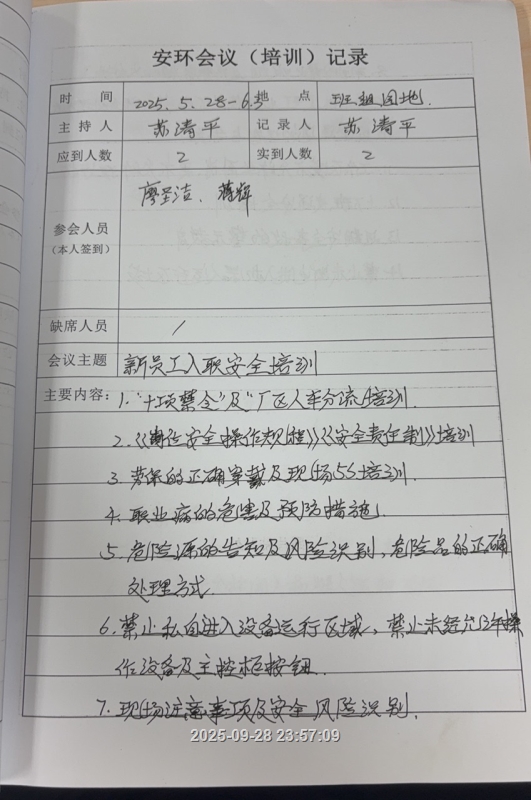 安环会议（培训）记录
时 间 2025.5.28-6.3 地 点 班组园地.
主持人 苏清平 记录人 苏清平
应到人数 2 实到人数 2
参会人员
（本人签到）
廖呈洁. 蒋辉
缺席人员 /
会议主题 新员工入职安全培训
主要内容: 1. “十项禁令”及“厂区人车分流”培训.
2. 《岗位安全操作规程》《安全责任制》培训
3. 劳保的正确穿戴及现场5S培训.
4. 职业病的危害及预防措施.
5. 危险源的告知及风险识别, 危险品的正确
处理方式.
6. 禁止私自进入设备运行区域, 禁止未经允许操
作设备及主控柜按钮.
7. 现场注意事项及安全风险识别.
2025-09-28 23:57:09